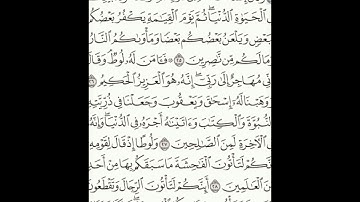 ٱلْحَيَوٰةِ ٱلدُّنْيَا ۖ ثُمَّ يَوْمَ ٱلْقِيَـٰمَةِ يَكْفُرُ بَعْضُكُم
بَعْضٍ وَيَلْعَنُ بَعْضُكُم بَعْضًا وَمَأْوَىٰكُمُ ٱلنَّارُ
مَا لَكُم مِّن نَّـٰصِرِينَ ٢٥ ۞ فَـَٔامَنَ لَهُۥ لُوطٌ ۘ وَقَالَ
نِّى مُهَاجِرٌ إِلَىٰ رَبِّىٓ ۖ إِنَّهُۥ هُوَ ٱلْعَزِيزُ ٱلْحَكِيمُ
وَهَبْنَا لَهُۥٓ إِسْحَـٰقَ وَيَعْقُوبَ وَجَعَلْنَا فِى ذُرِّيَّتِهِ
ٱلنُّبُوَّةَ وَٱلْكِتَـٰبَ وَءَاتَيْنَـٰهُ أَجْرَهُۥ فِى ٱلدُّنْيَا ۖ وَإِنَّهُ
ٱلْـَٔاخِرَةِ لَمِنَ ٱلصَّـٰلِحِينَ ٢٧ وَلُوطًا إِذْ قَالَ لِقَوْمِهِ
نَّكُمْ لَتَأْتُونَ ٱلْفَـٰحِشَةَ مَا سَبَقَكُم بِهَا مِنْ أَحَدٍ
ٱلْعَـٰلَمِينَ ٢٨ أَئِنَّكُمْ لَتَأْتُونَ ٱلرِّجَالَ وَتَقْطَعُونَ